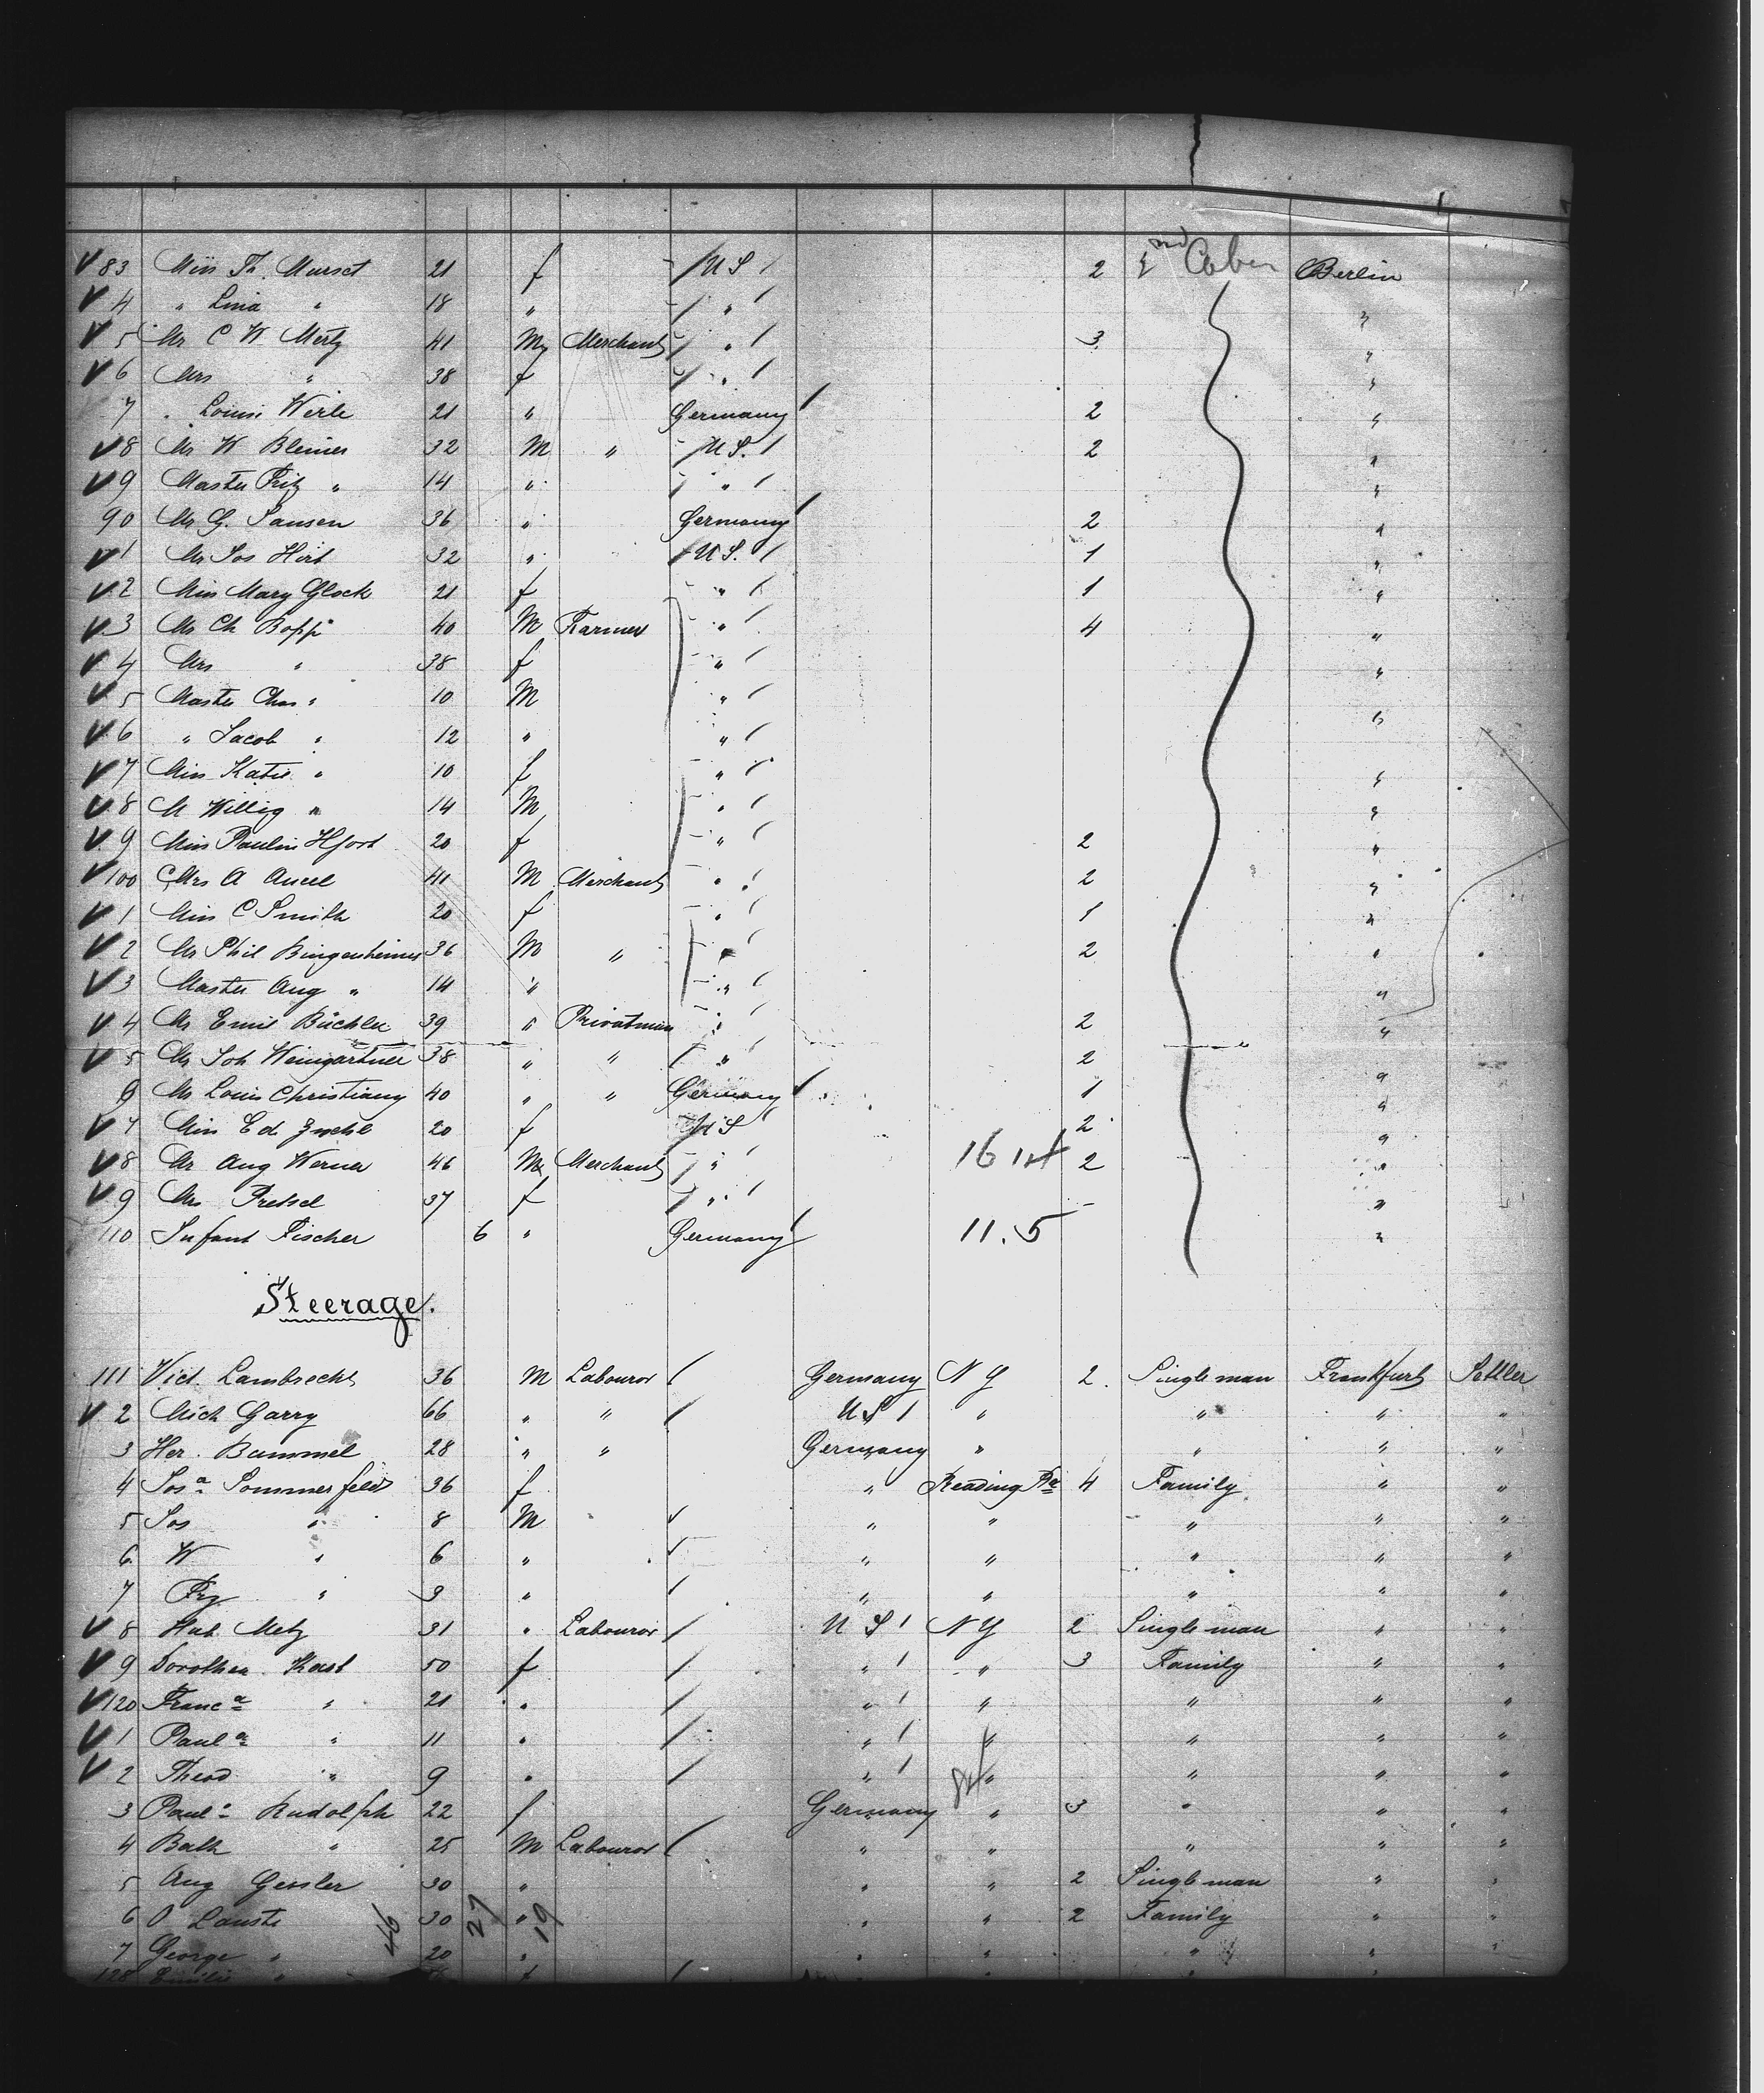 83 Miss Th. Murset 21 f U S 2 2nd Cabin Berlin
4 " Lina " 18 " " "
5 Mr C W Mertz 41 M Merchant " 3 "
6 Mrs " 38 f " "
7 " Louise Werle 21 " Germany 2 "
8 Mr W Bleimes 32 M " U S. 2 "
9 Master Fritz " 14 " " "
90 Mr G. Pansen 36 " Germany 2 "
1 Mr Jos Hirt 32 " U S. 1 "
2 Miss Mary Glock 21 f " 1 "
3 Mr Ch Bopp 40 M Farmer " 4 "
4 Mrs " 38 f " "
5 Master Chas " 10 M " "
6 " Jacob " 12 " " "
7 Miss Katie " 10 f " "
8 M Willig " 14 M " "
9 Miss Paulin Hjort 20 f " 2 "
100 Mrs A Ancel 41 M Merchant " 2 "
1 Miss C Smith 20 f " 1 "
2 Mr Phil Bingenheimer 36 M " " 2 "
3 Master Aug " 14 " " "
4 Mr Emil Büchler 39 " Privatman " 2 "
5 Mr Joh Weingartner 38 " " " 2 "
9 Mr Louis Christiany 40 " " Germany 1 "
7 Miss E de 20 f U S 2 "
8 Mr Aug Werner 46 M Merchant " 16 14 2 "
9 Mrs Pretsel 37 f " - "
110 Infant Fischer 6 " Germany 11.5 "
Steerage.
111 Vict Lambrecht 36 M Labourer Germany N Y 2. Single man Frankfurt Settler
2 Mich Garry 66 " " U S " " " "
3 Her. Bummel 28 " " Germany " " " "
4 Josa Sommerfeld 36 f " Reading Pa 4 Family " "
5 Jos " 8 M " " " " "
6 W " 6 " " " " " "
7 Frz " 3 " " " " " "
8 Hub Metz 31 " Labourer U S N Y 2 Single man " "
9 Dorothea Kast 50 f " " 3 Family " "
120 Franca " 21 " " " " " "
1 Paula " 11 " " " " " "
2 Theod " 9 " " " " " "
3 Paula Rudolph 22 f Germany " 3 " " "
4 Balth " 25 M Labourer " " " " "
5 Aug Gessler 30 " " " 2 Single man " "
6 O Lauste 30 " " " 2 Family " "
7 George " 20 " " " " " "
128 Emilie " f " " " "
46 27 19